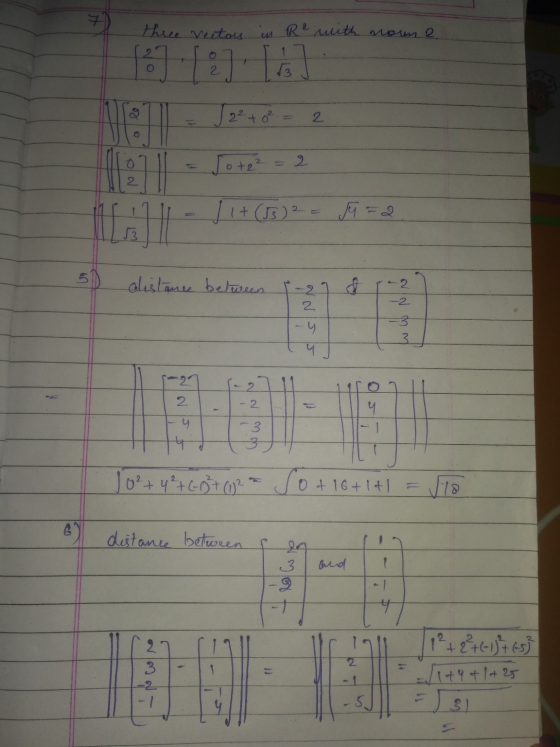 7) three vectors in R² with norm 2.
[2 0], [0 2], [1 √3].
||[2 0]|| = √2² + 0² = 2
||[0 2]|| = √0+2² = 2
||[1 √3]|| = √1 + (√3)² = √4 = 2
5) distance between [-2 2 -4 4] & [-2 -2 -3 3]
= ||[-2 2 -4 4] - [-2 -2 -3 3]|| = ||[0 4 -1 1]||
√0² + 4² + (-1)² + (1)² = √0 + 16 + 1 + 1 = √18
6) distance between [2 3 -2 -1] and [1 1 -1 4]
||[2 3 -2 -1] - [1 1 -1 4]|| = ||[1 2 -1 -5]|| = √1² + 2² + (-1)² + (-5)²
= √1 + 4 + 1 + 25
= √31
=